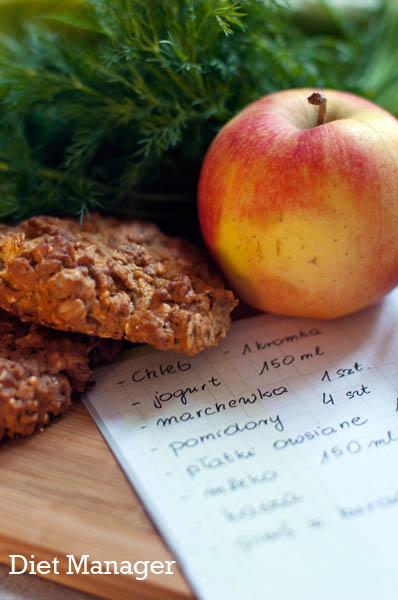 - chleb - 1 kromka
- jogurt 150 ml
- marchewka 1 szt.
- pomidory 4 szt
- płatki owsiane 1
- mleko 150 ml
- kasza
Diet Manager